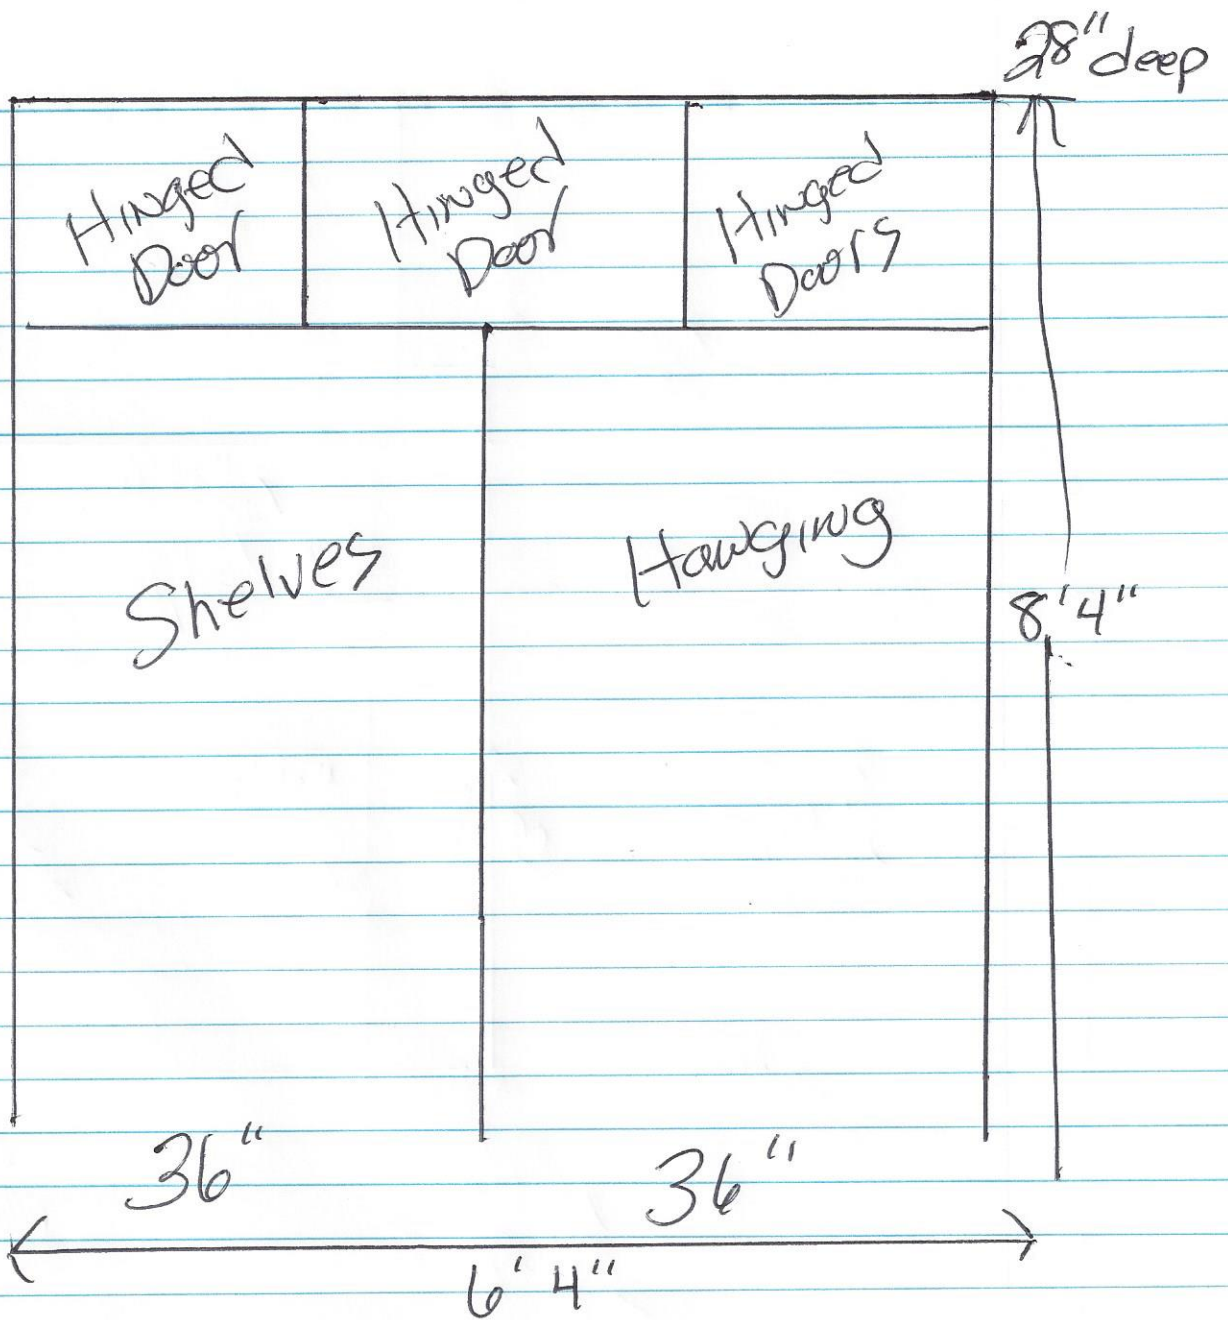 28" deep
Hinged
Door
Hinged
Door
Hinged
Doors
Shelves
Hanging
8'4"
36"
36"
6'4"